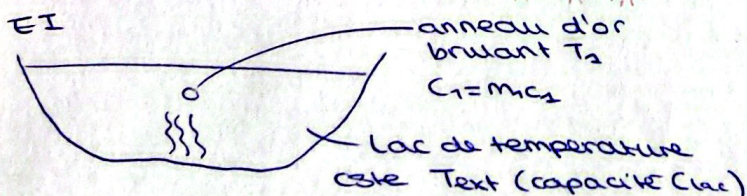 EI
anneau d'or
brulant T₁
C₁=m₁c₁
Lac de température
cste Text (capacité Clac)